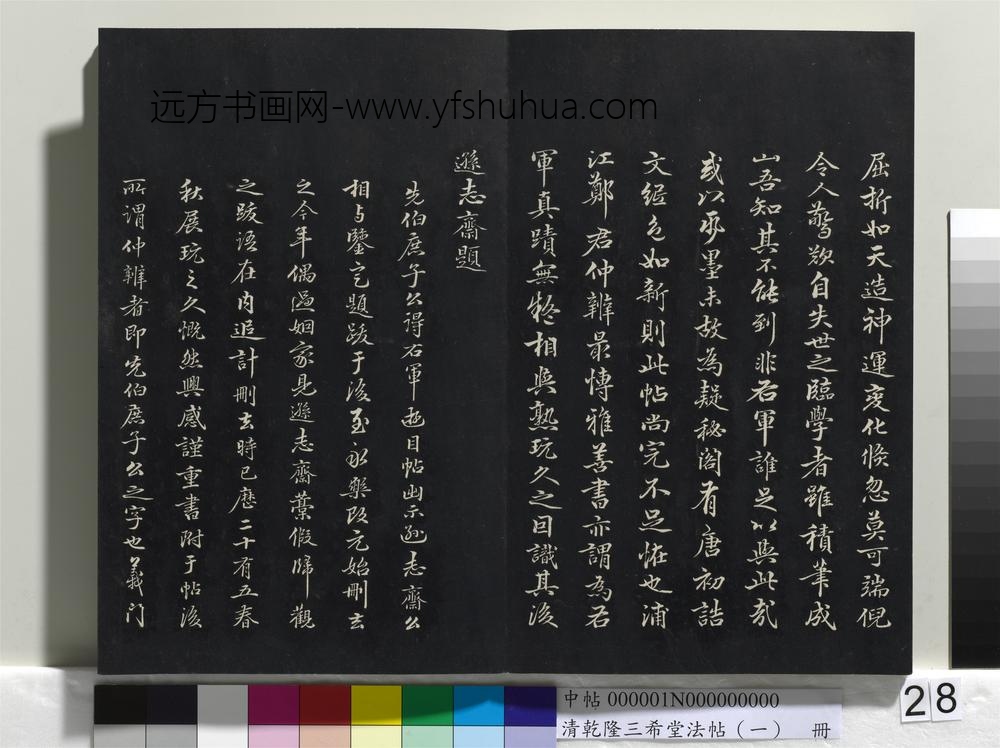 远方书画网-www.yfshuhua.com
屈折如天造神運变化倏忽莫可端倪
令人驚歎自失世之臨學者雖積筆成
山吾知其不能到非右軍誰足以與此哉
或以承墨未故為疑秘阁有唐初誥
文纸色如新則此帖尚完不足恠也浦
江鄭君仲辨最愽雅善書亦謂為右
軍真蹟無疑相與熟玩久之因識其後
遜志齋題
先伯庶子公得右軍遊目帖幽示遜志齋公
相与鑒定題跋于後至永樂改元始刪去
之今年偶過姻家見遜志齋藁假歸觀
之跋语在内追計刪去時已歷二十有五春
秋展玩之久慨然興感謹重書附于帖後
所謂仲辨者即先伯庶子公之字也義门
中帖 000001N000000000
清乾隆三希堂法帖（一） 冊
28